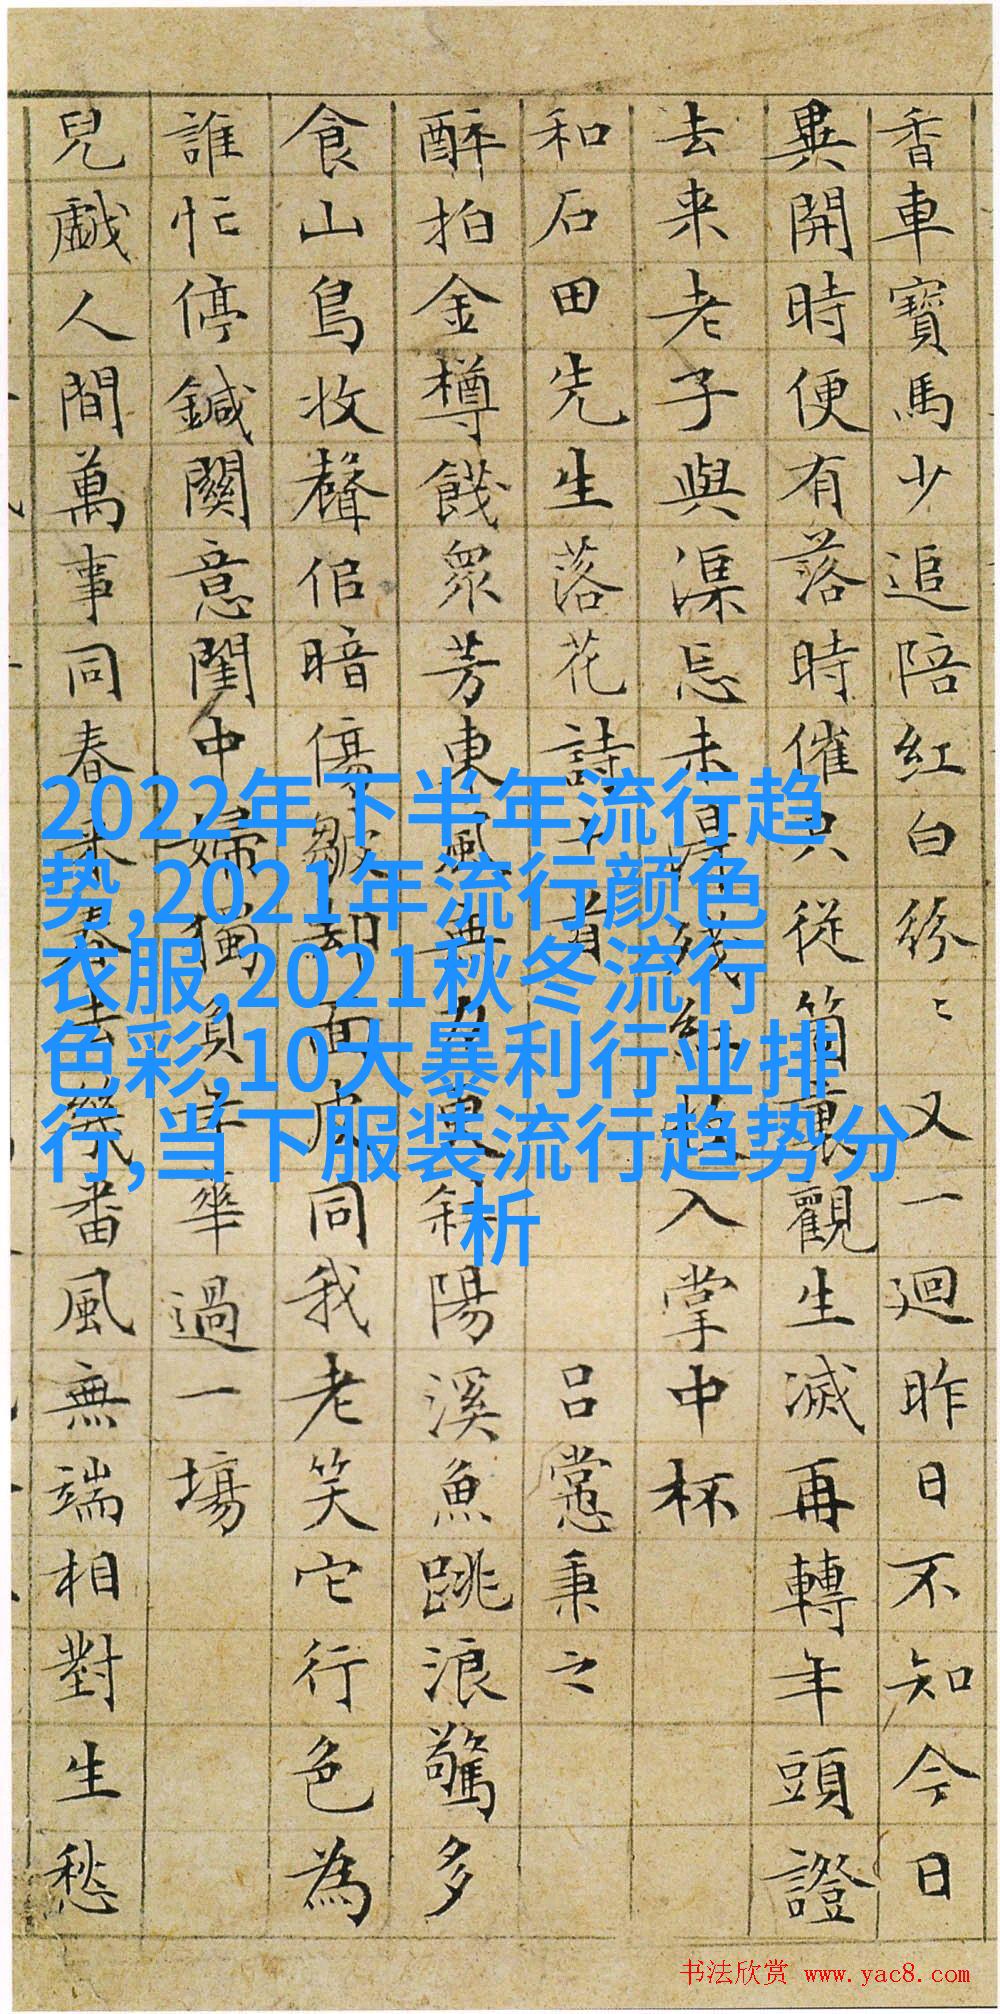 香車寶馬少追陪紅白紛〻又一迴昨日不知今日
異開時便有落時催只従箇裏觀生滅再轉年頭證
去来老子與渠忘未得殘紅入掌中杯
和石田先生落花詩十首 呂㦂秉之
醉拍金樽餞衆芳東風無力更斜陽溪魚跳浪驚多
食山鳥收聲佀暗傷皺却面皮同我老笑它行色為
誰忙停鍼關意閨中婦獨負年華過一場
兒戯人間萬事同春来春去幾番風無端相對生愁
2022年下半年流行趋
势,2021年流行颜色
衣服,2021秋冬流行
色彩,10大暴利行业排
行,当下服装流行趋势分
析
书法欣赏 www.yac8.com